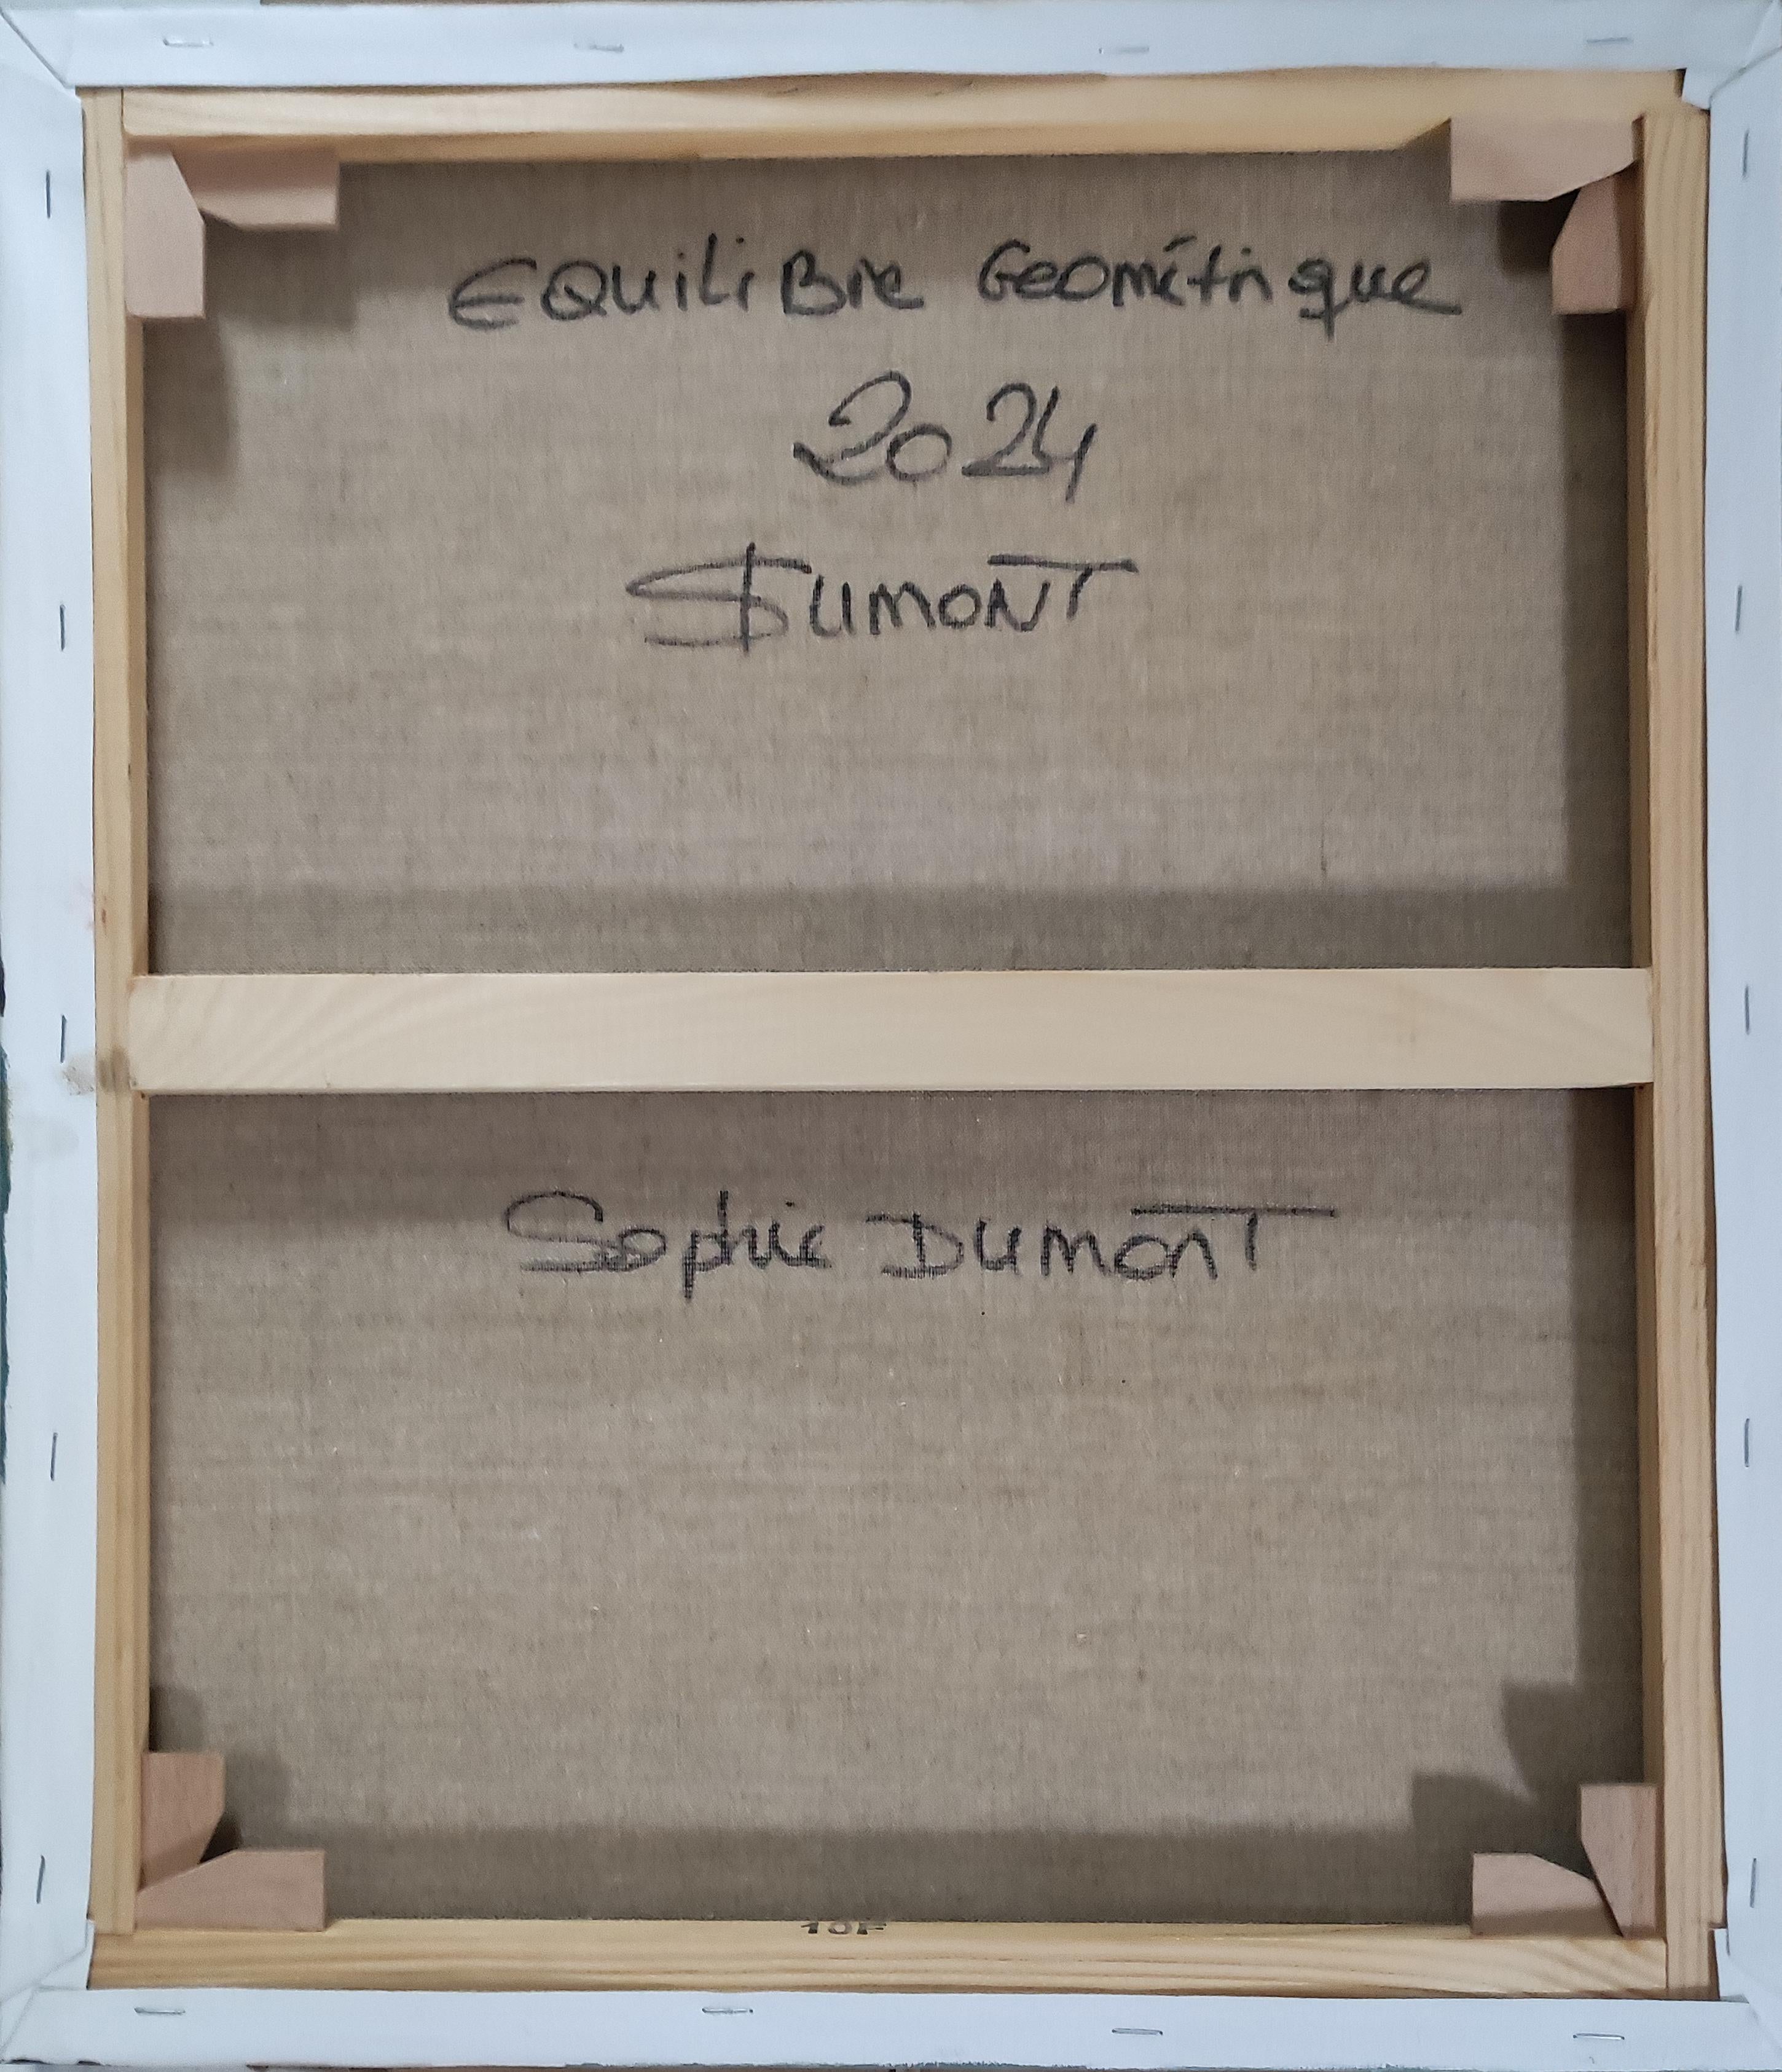 EQUiLiBre GeOmétrique
2024
SDUMONT
Sophie DUMONT
10F